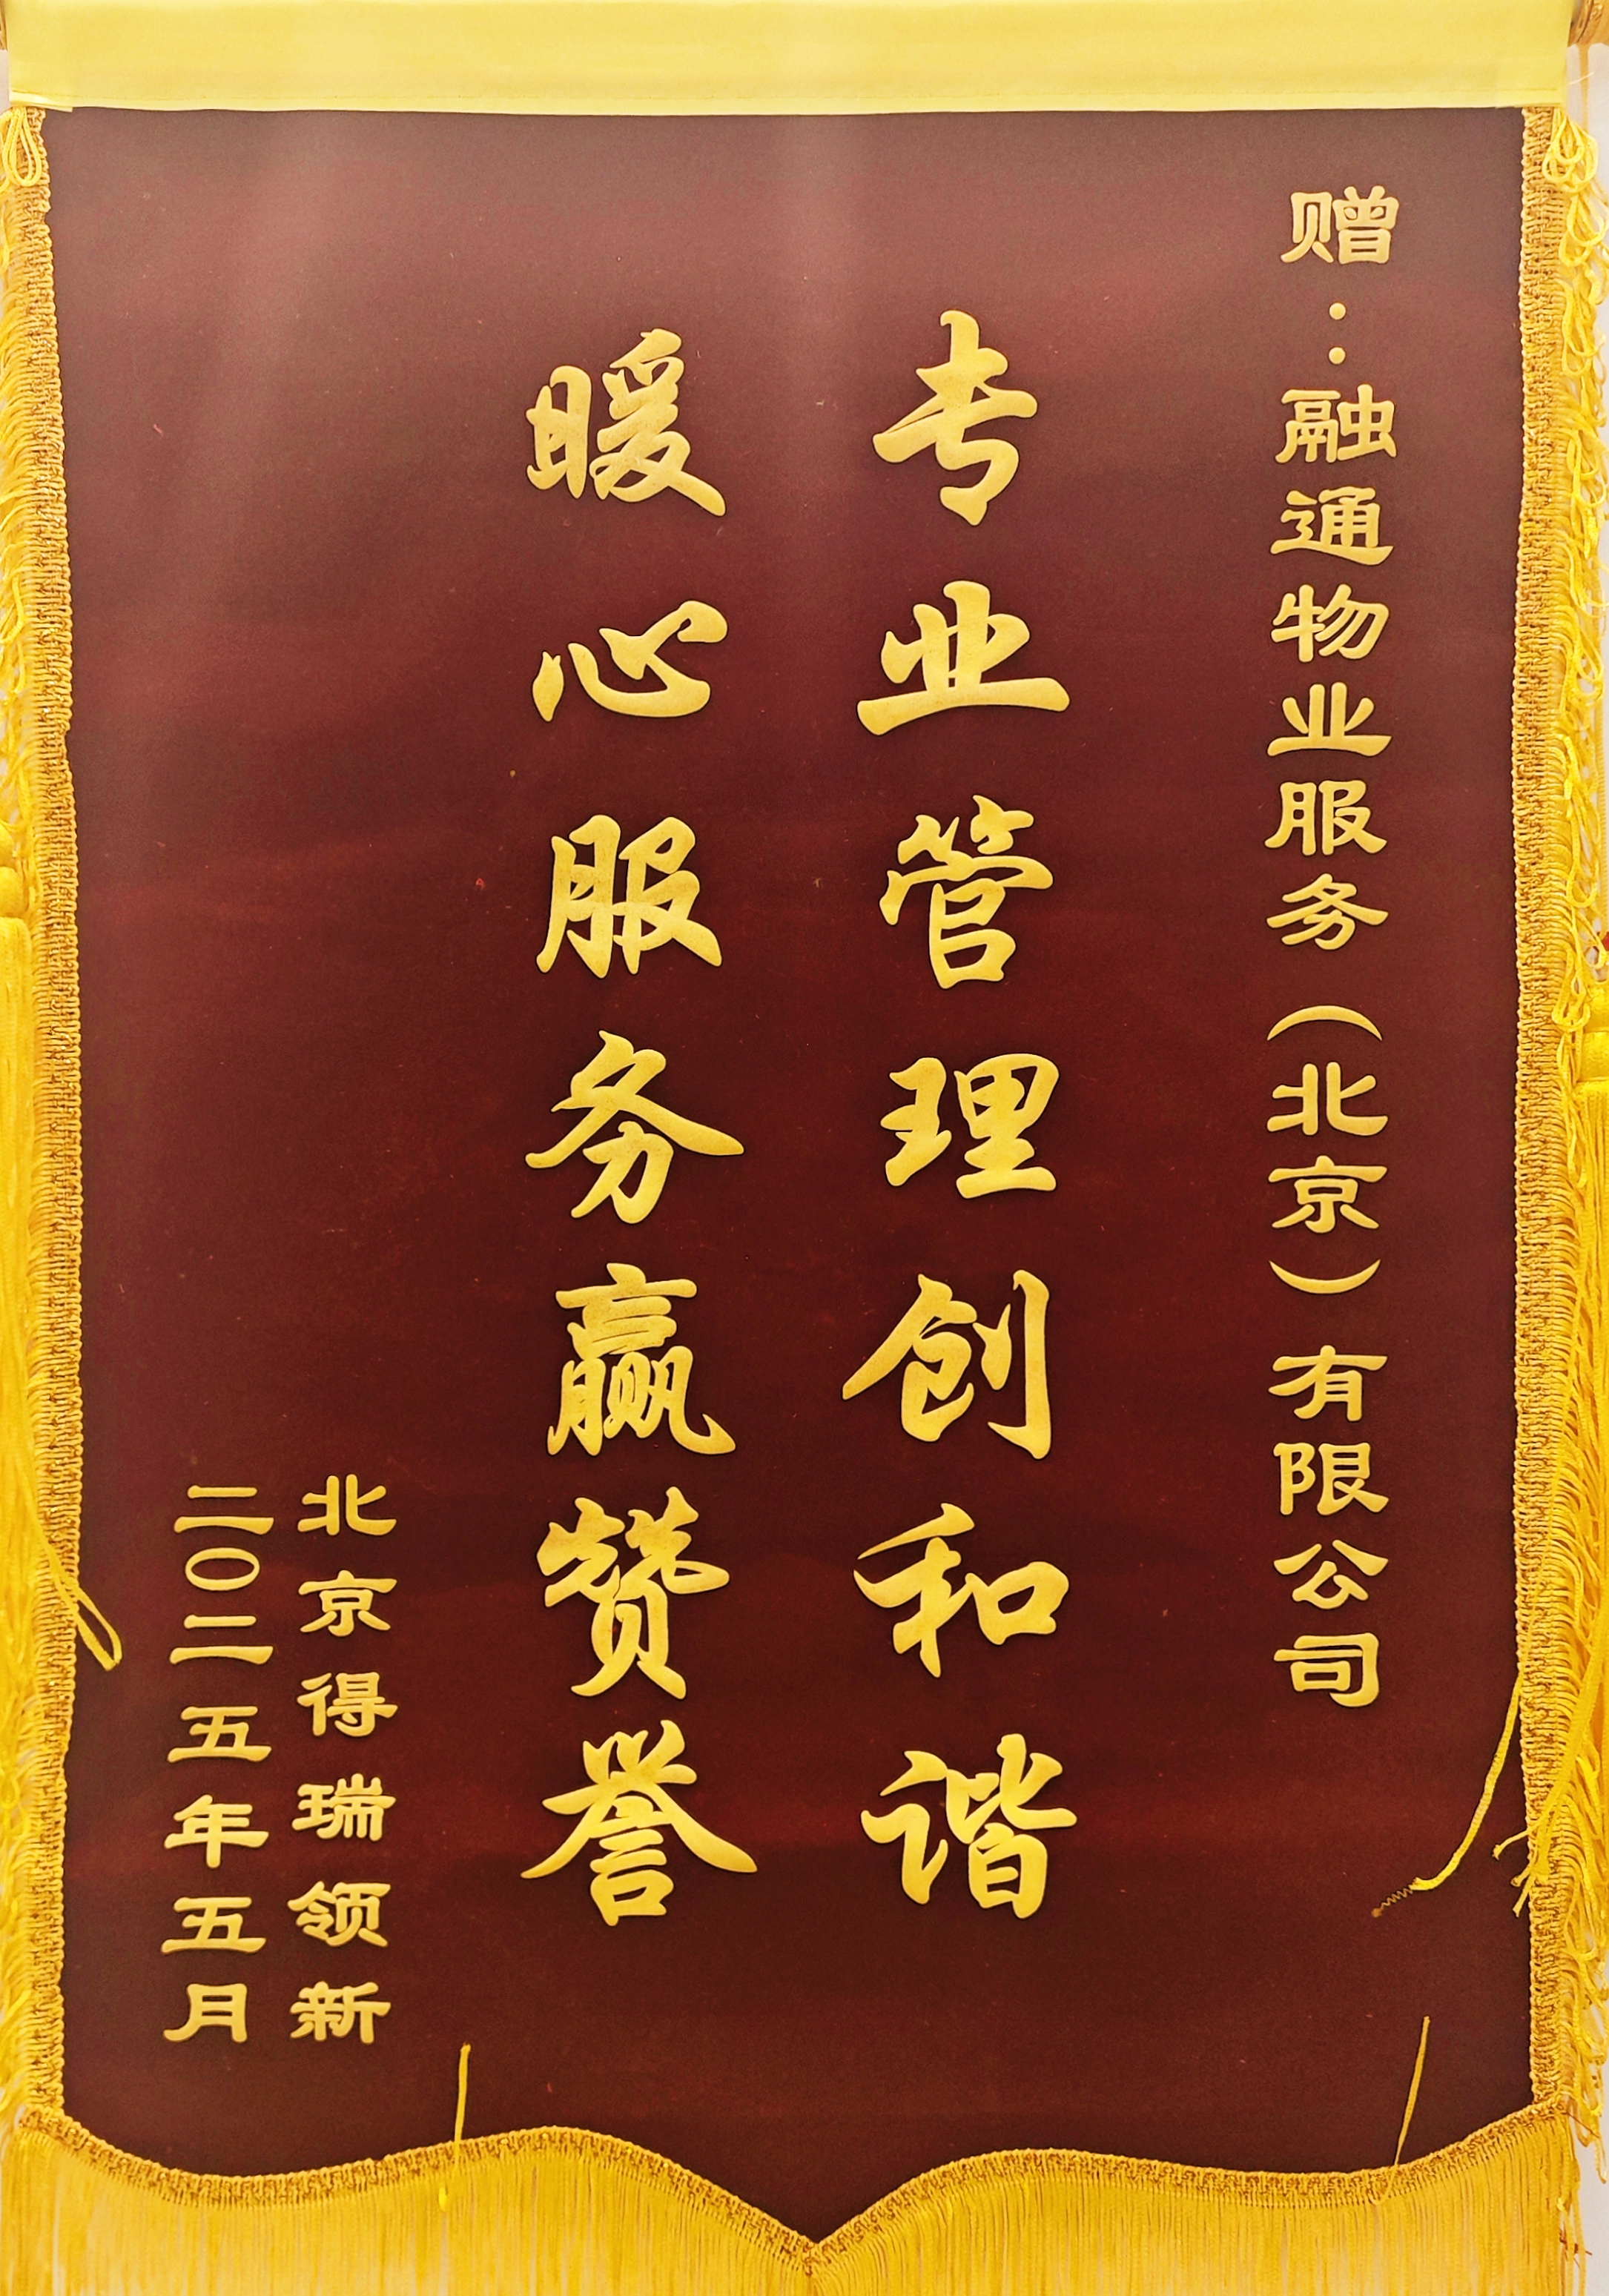 赠：融通物业服务（北京）有限公司
专业管理创和谐
暖心服务赢赞誉
北京得瑞领新
二〇二五年五月